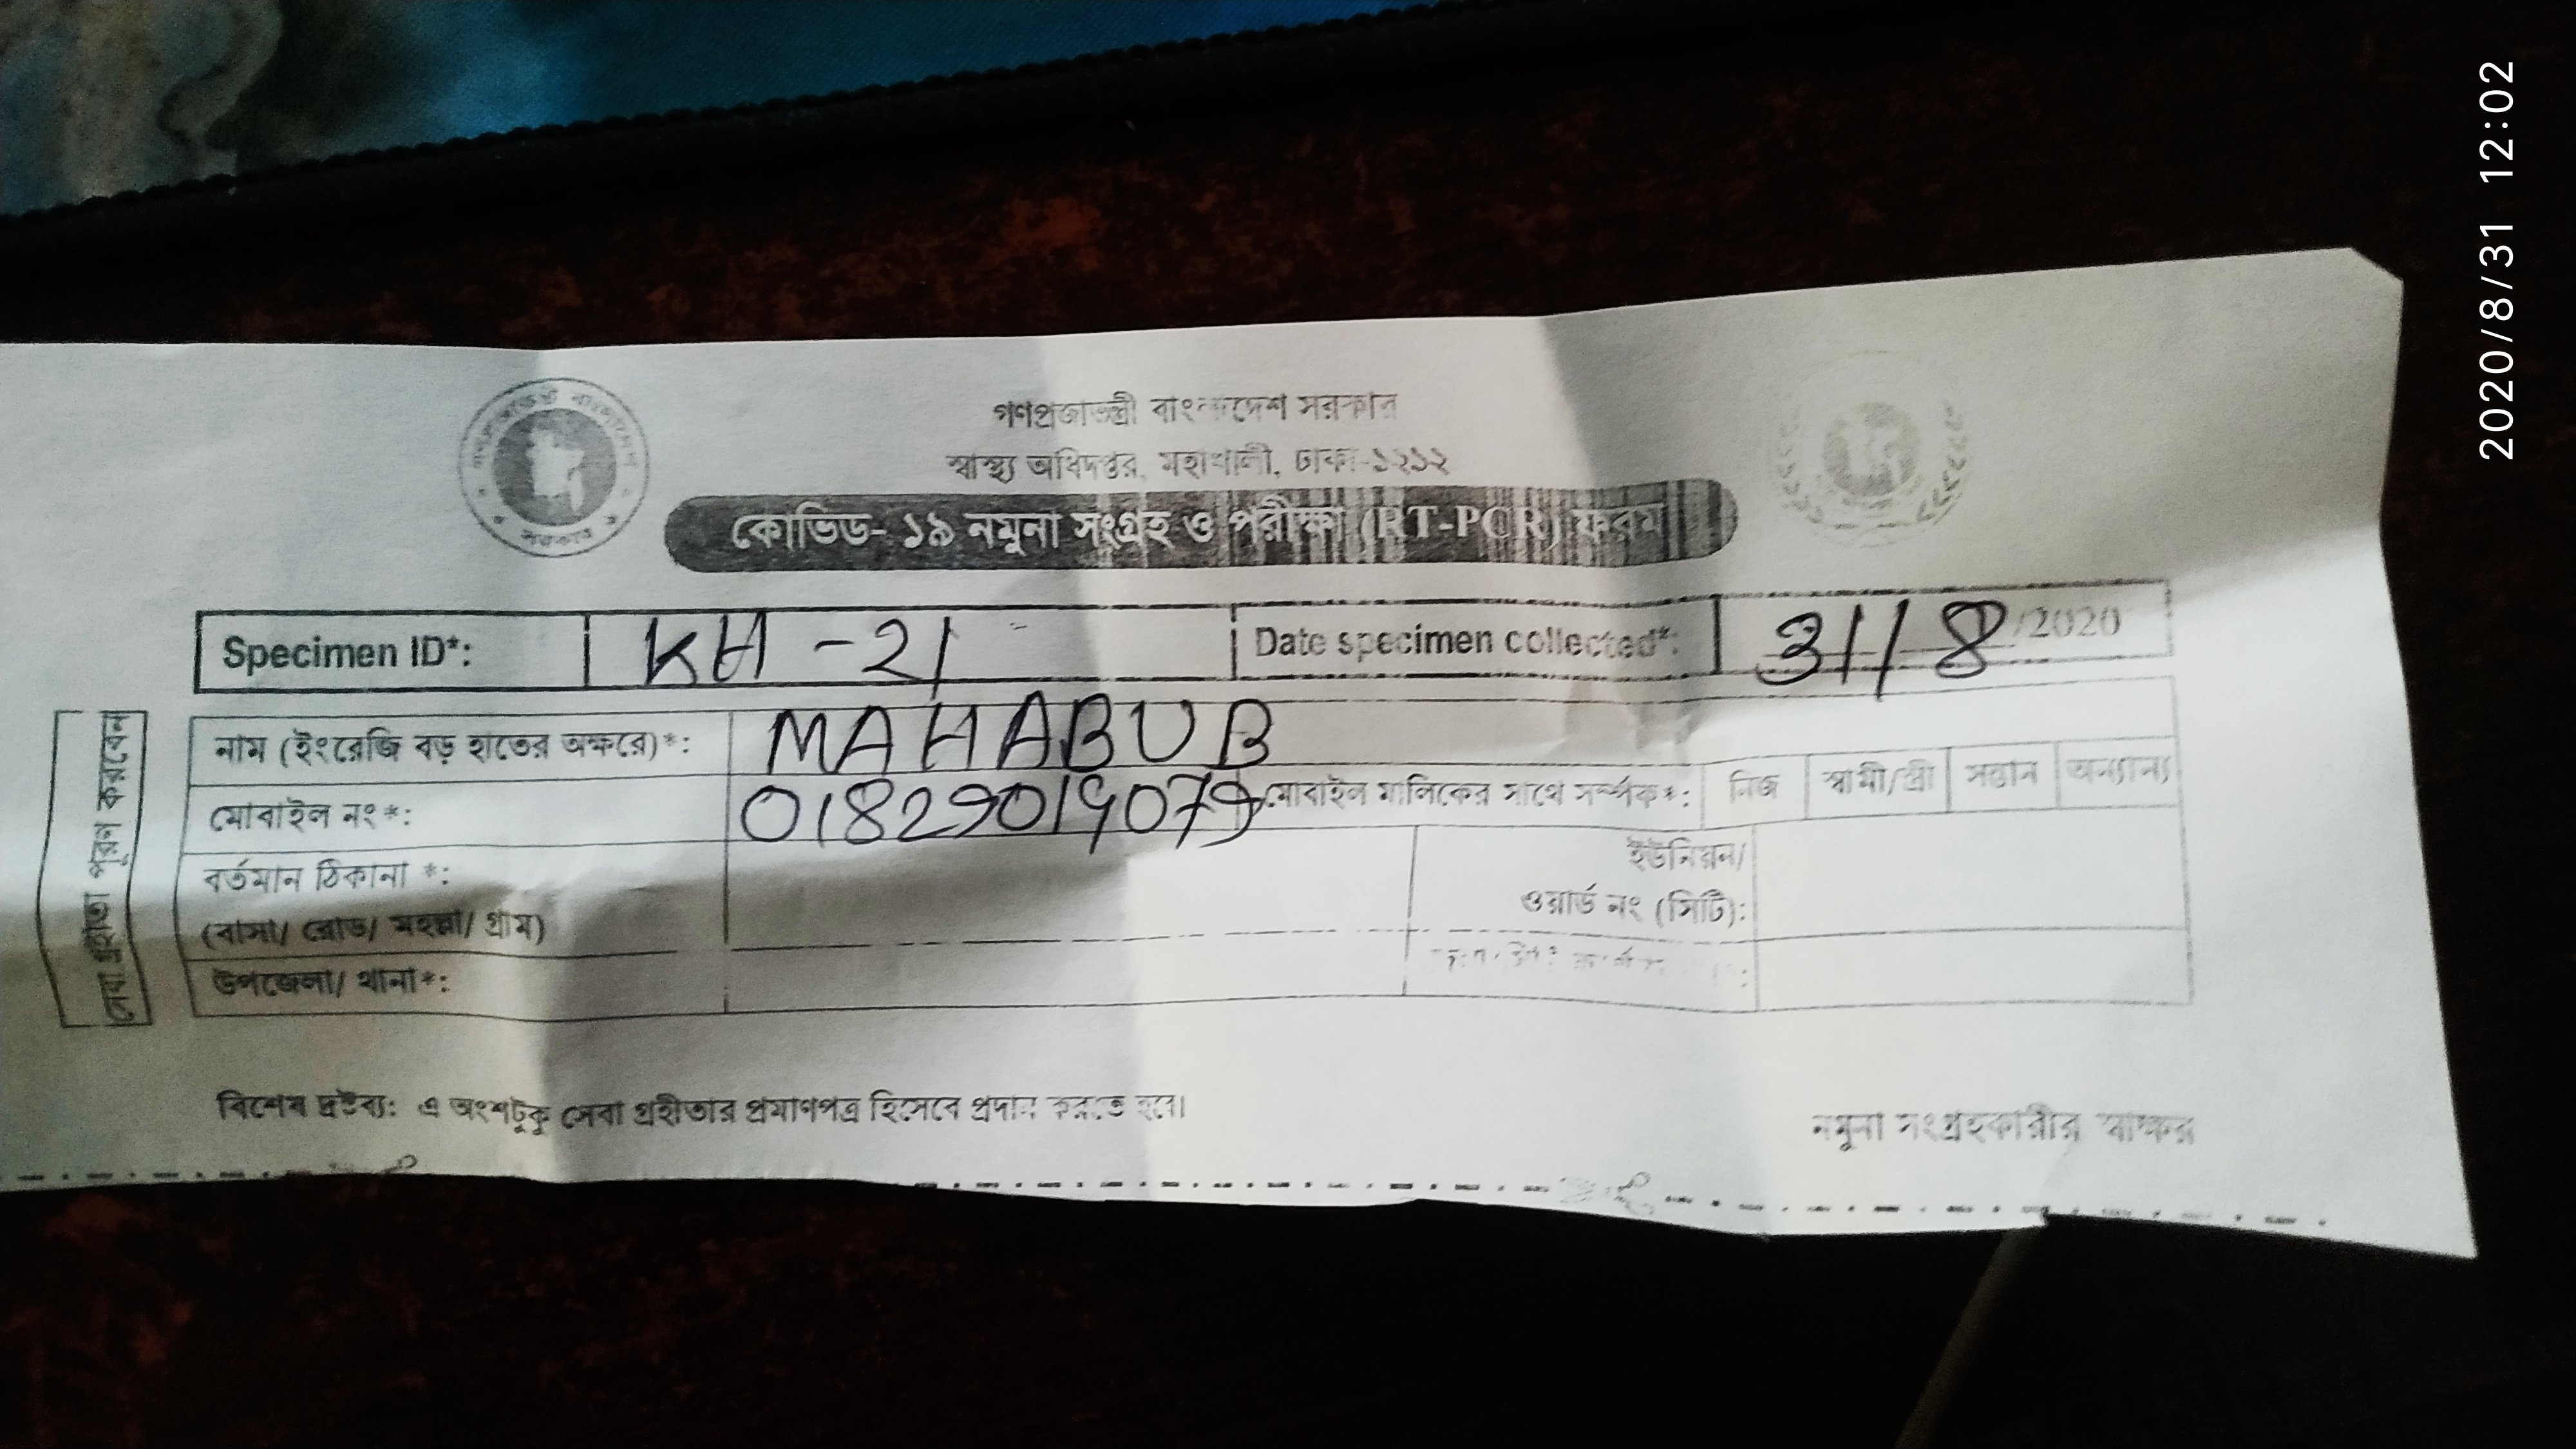 গণপ্রজাতন্ত্রী বাংলাদেশ সরকার
স্বাস্থ্য অধিদপ্তর, মহাখালী, ঢাকা-১২১২
কোভিড- ১৯ নমুনা সংগ্রহ ও পরীক্ষা (RT-PCR) ফরম
Specimen ID*: KH -21 Date specimen collected*: 31/8/2020
সেবা গ্রহীতা পূরণ করবেন
নাম (ইংরেজি বড় হাতের অক্ষরে)*: MAHABUB
মোবাইল নং*: 01829019079 মোবাইল মালিকের সাথে সম্পর্ক*: নিজ স্বামী/স্ত্রী সন্তান অন্যান্য
বর্তমান ঠিকানা *: ইউনিয়ন/
(বাসা/ রোড/ মহল্লা/ গ্রাম) ওয়ার্ড নং (সিটি):
উপজেলা/ থানা*:
বিশেষ দ্রষ্টব্য: এ অংশটুকু সেবা গ্রহীতার প্রমাণপত্র হিসেবে প্রদান করতে হবে।
নমুনা সংগ্রহকারীর স্বাক্ষর
2020/8/31 12:02